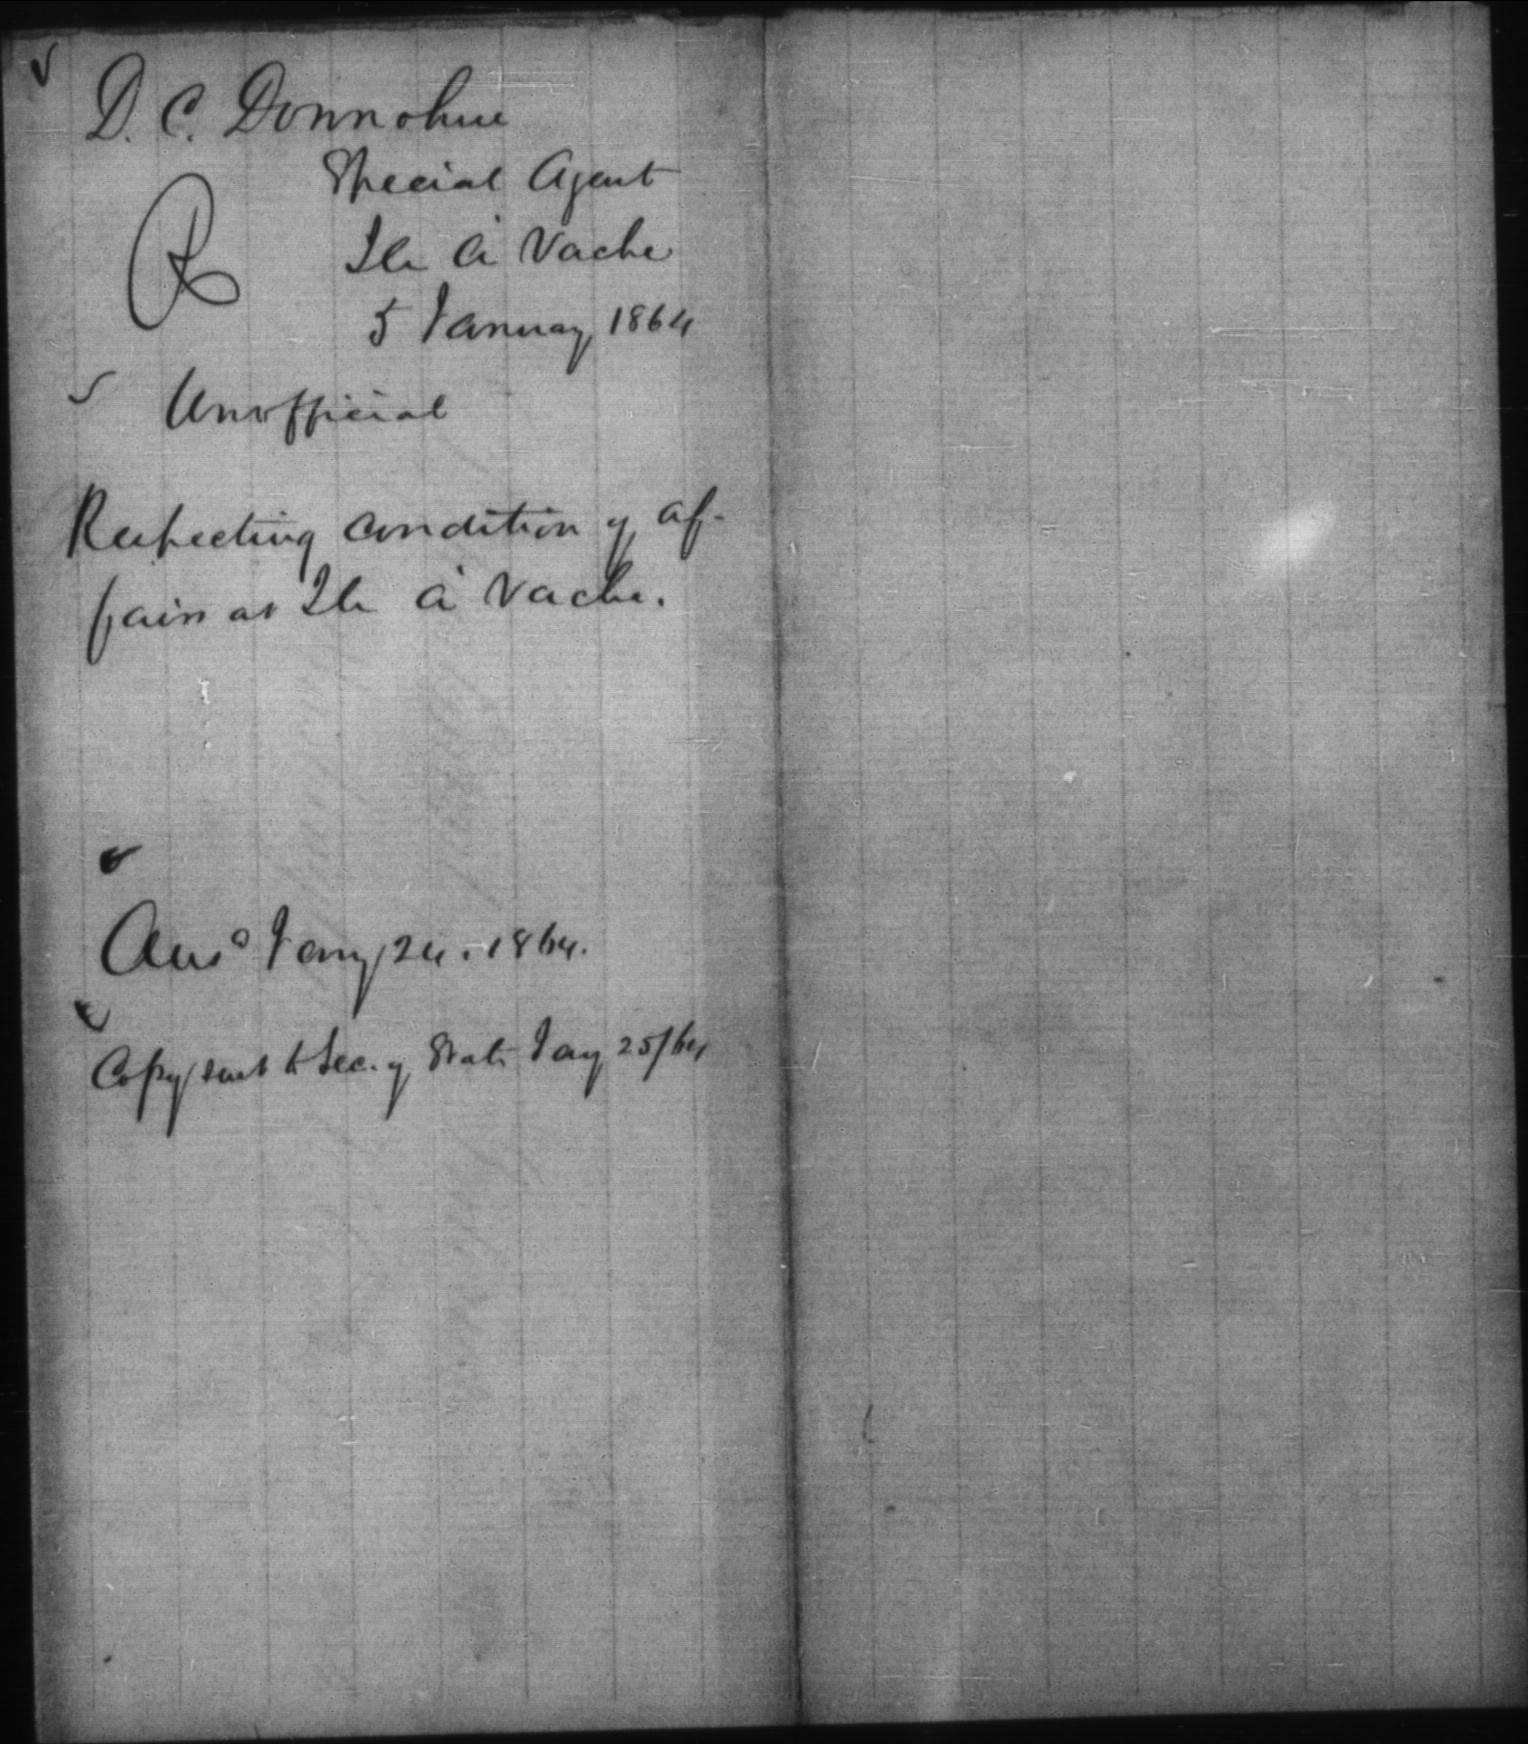 D. C. Donnohue
Special Agent
R
Ile à Vache
5 January, 1864
Unofficial
Respecting condition of af-
fairs at Ile à Vache.
Ansd Jany 24. 1864.
Copy sent to Sec. of State Jany 25/64